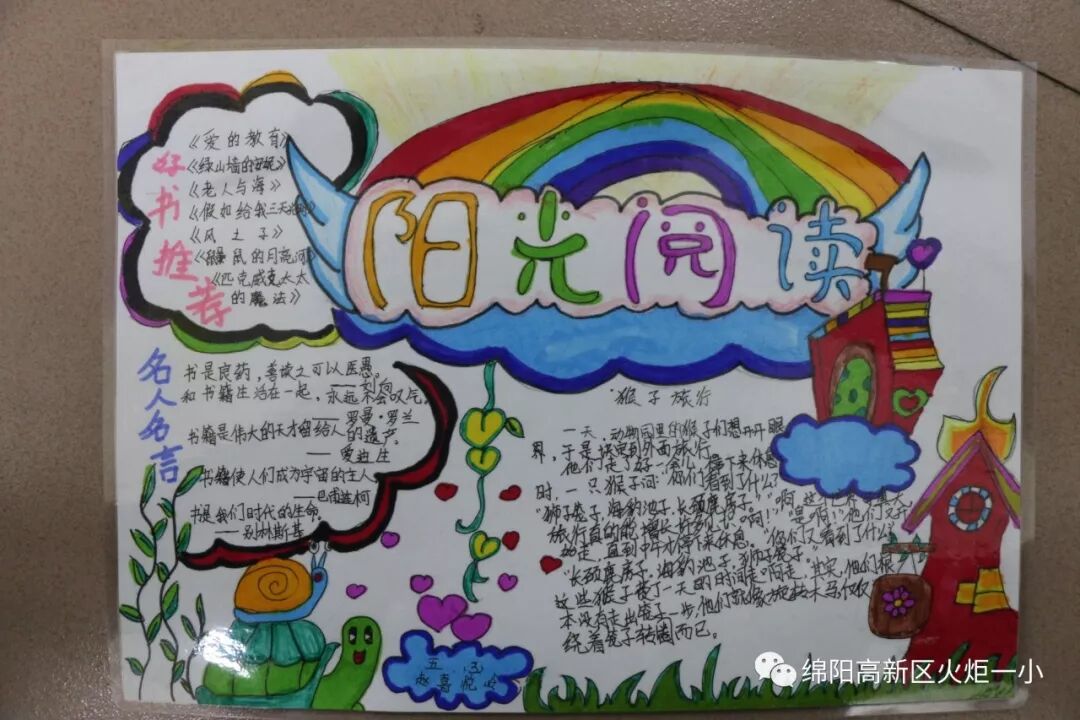 阳光阅读
好书推荐
《爱的教育》
《绿山墙的安妮》
《老人与海》
《假如给我三天光明》
《风之子》
《鼹鼠的月亮河》
《匹克威克太太
的魔法》
名人名言
书是良药，善读之可以医愚。
——刘向
和书籍生活在一起，永远不会叹气。
——罗曼·罗兰
书籍是伟大的天才留给人的遗产。
——爱迪生
书籍使人们成为宇宙的主人。
——巴甫连柯
书是我们时代的生命。
——别林斯基
猴子旅行
一天，动物园里的猴子们想开开眼
界，于是决定到外面旅行。
他们走了好一会儿，停下来休息
时，一只猴子问：“你们看到了什么？”
“狮子笼子，海豹池子，长颈鹿房子。”“啊，
旅行真的能增长
“长颈鹿房子，海豹池子，狮子笼子。”
这些猴子费了一天的时间走啊走，其实，他们根
本没有走出笼子一步，他们就像旋转木马似的
绕着笼子转圈而已。
五.3
绵阳高新区火炬一小